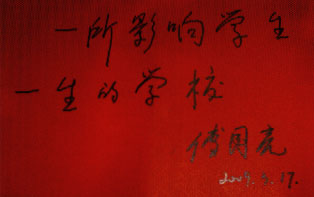 一所影响学生
一生的学校
傅国亮
2009.5.17.